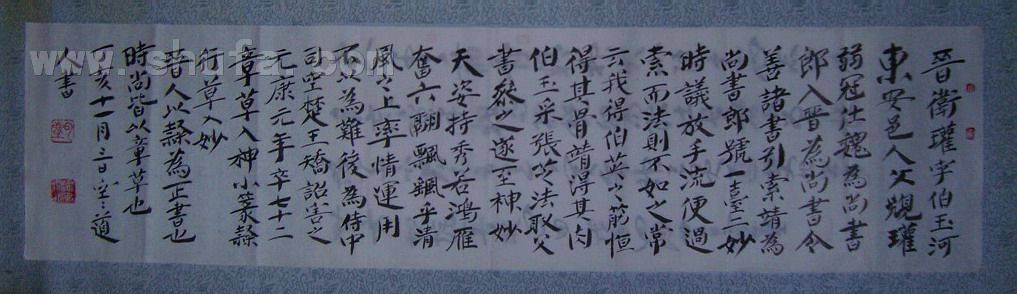 晉衛瓘字伯玉河
東安邑人父覬瓘
弱冠仕魏為尚書
郎入晉為尚書令
善諸書引索靖為
尚書郎號一臺二妙
時議放手流便過
索而法則不如之常
云我得伯英之筋恒
得其骨靖得其肉
伯玉采張芝法取父
書參之遂至神妙
天姿特秀若鴻雁
奮六翮飄飄乎清
風之上率情運用
不以為難後為侍中
司空楚王矯詔害之
元康元年卒七十二
章草入神小篆隸
行草入妙
晉人以隸為正書也
時尚皆以章草也
丁亥十一月三日
人書
www.shufa.com